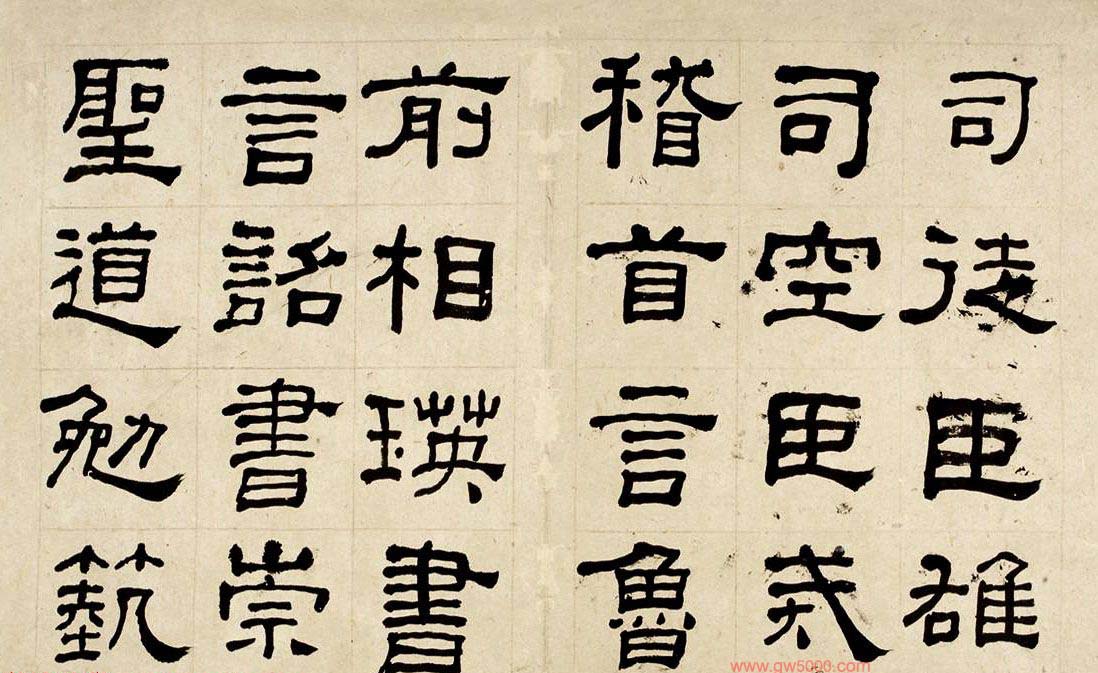 司徒臣雄
司空臣戒
稽首言魯
前相瑛書
言詔書崇
聖道勉藝
www.qw5000.com